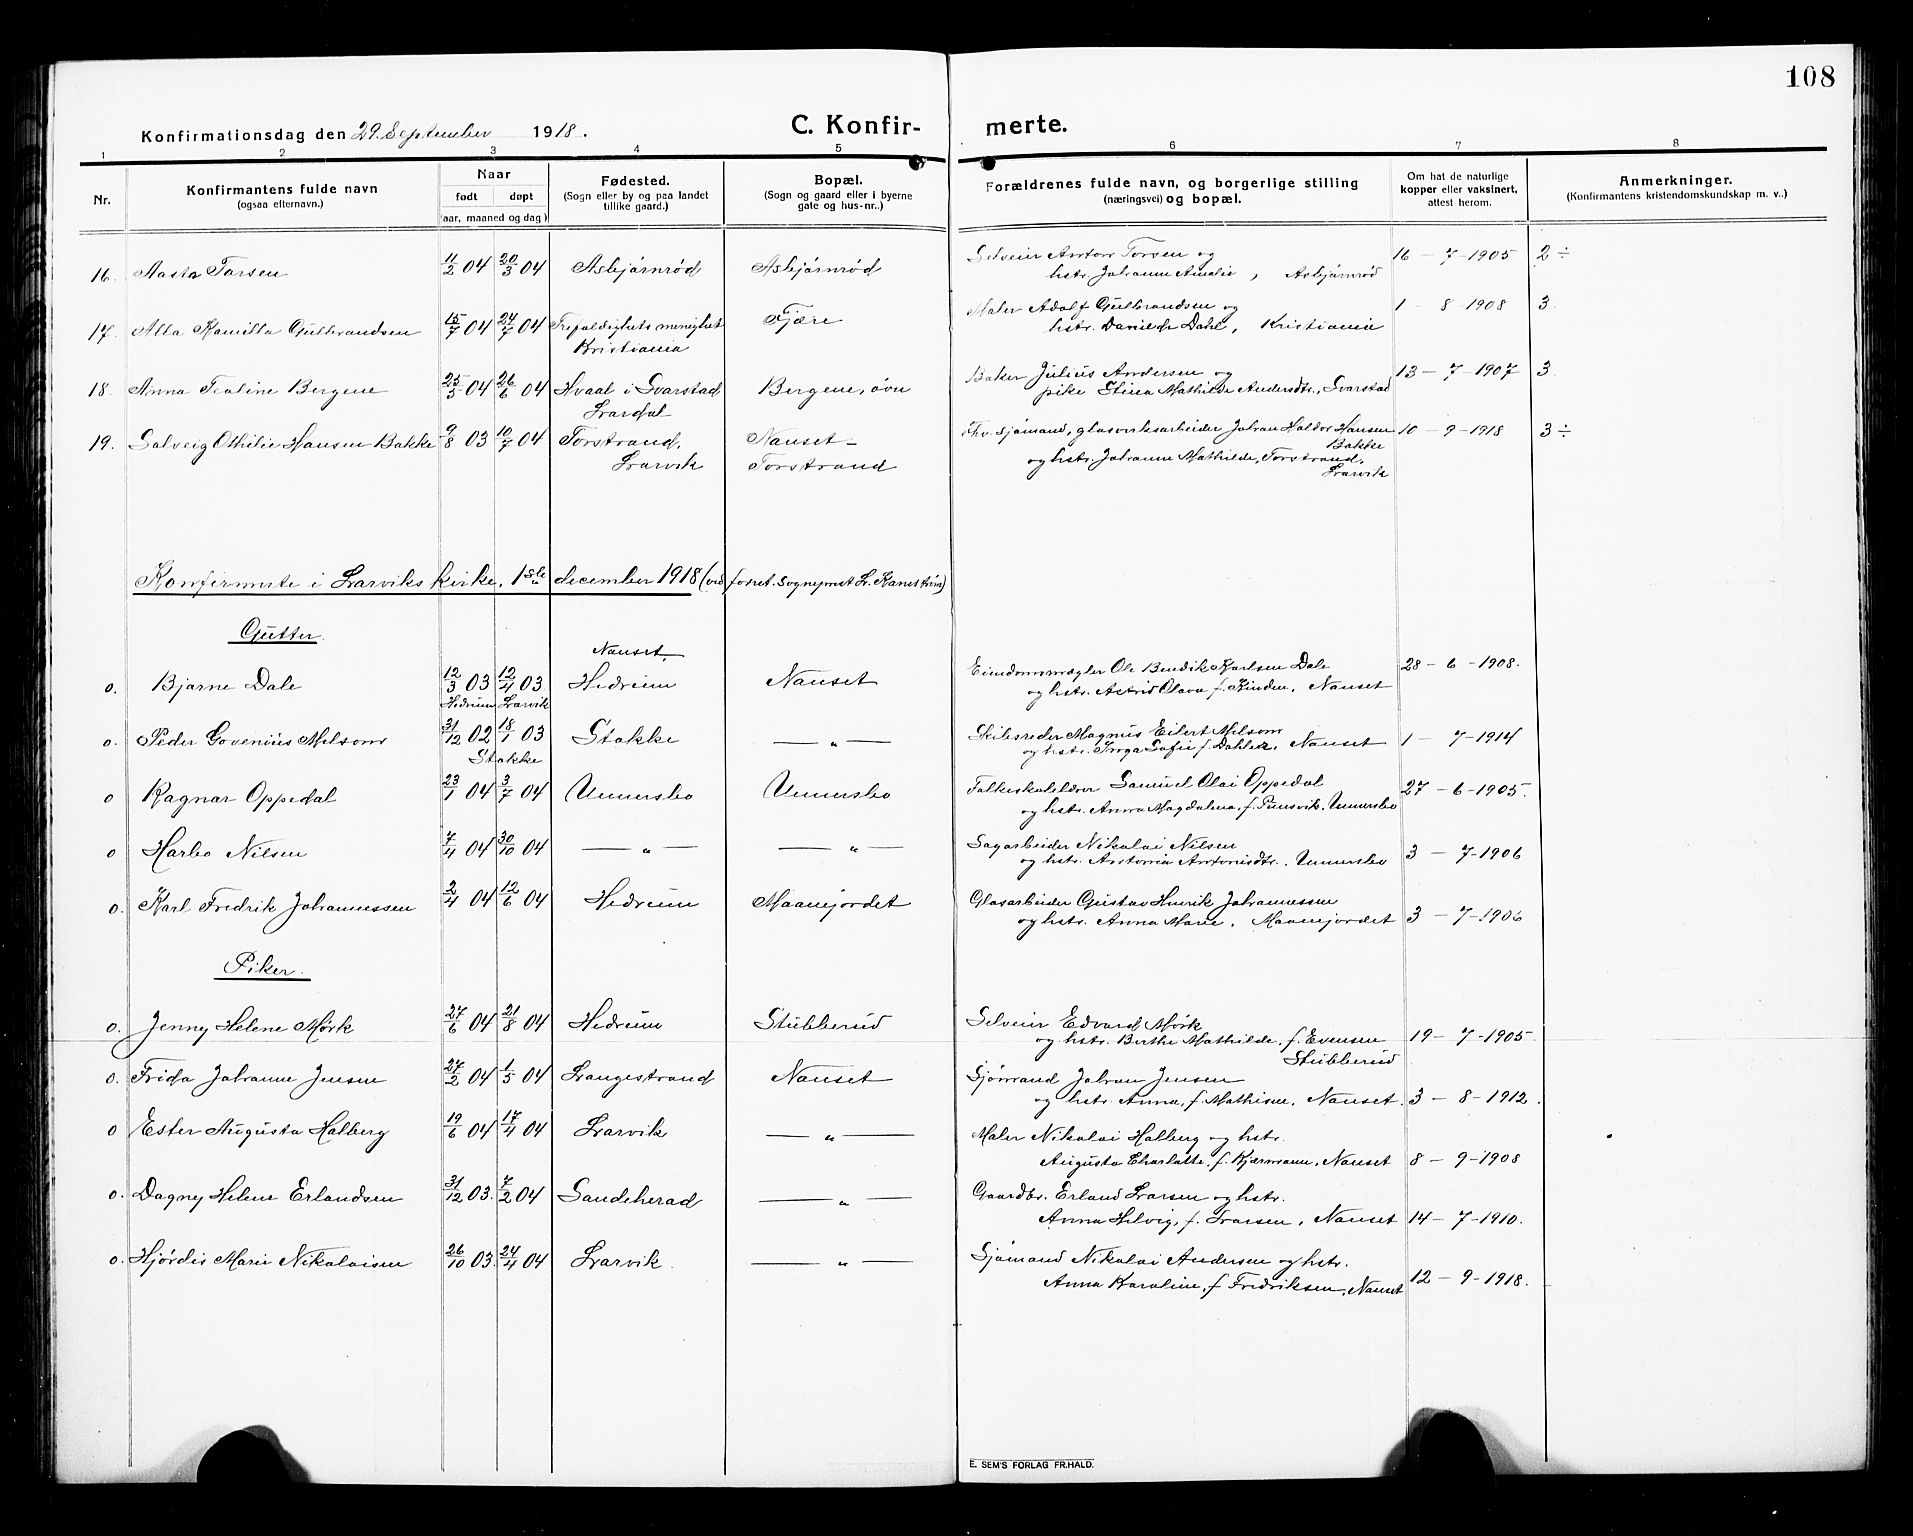 108
Konfirmationsdag den 29. September 1918.
C. Konfirmerte.
1 2 3 4 5 6 7 8
Nr.
Konfirmantens fulde navn
(ogsaa efternavn.)
Naar
født døpt
(aar, maaned og dag)
Fødested.
(Sogn eller by og paa landet
tillike gaard.)
Bopæl.
(Sogn og gaard eller i byerne
gate og hus-nr..)
Forældrenes fulde navn, og borgerlige stilling
(næringsvei) og bopæl.
Om hat de naturlige
kopper eller vaksinert,
attest herom.
Anmerkninger.
(Konfirmantens kristendomskundskap m. v..)
16. Aasta Torsen 11/2 04 20/3 04 Asbjørnrød Asbjørnrød Selveier Anton Torsen og 16 - 7 - 1905 2 ÷
hstr. Johanne Amalie, Asbjørnrød
17. Alla Kamilla Gulbrandsen 15/7 04 24/7 04 Trefoldighets menighet Fjære Maler Adolf Gulbrandsen og 1 - 8 1908 3.
Kristiania hstr. Danielle Dahl, Kristiania
18. Anna Tealine Bergene 25/3 04 26/6 04 Hvaal i Svarstad Bergene, øvn Baker Julius Andersen og 13 - 7 - 1907 3.
Lardal pike Stina Mathilde Andersdtr., Svarstad
19. Solveig Othilie Hansen Bakke 9/8 03 10/7 04 Torstrand, Nanset - Fhv. sjømand, glasverksarbeider Johan Haldor Hansen 10 - 9 - 1918 3 ÷
Bakke
Larvik Torstrand og hstr. Johanne Mathilde, Torstrand,
Larvik
Konfirmerte i Larviks kirke, 1ste december 1918 (ved forret. sogneprest L. Kanestrøm)
Gutter.
Nanset,
o. Bjarne Dale 12/3 03 12/4 03 Hedrum Nanset Eiendomsmægler Ole Bendik Karlsen Dale 28 - 6 - 1908.
Hedrum Larvik og hstr. Astrid Olava f. Kinden, Nanset
o. Peder Govenius Melsom 31/12 02 18/1 03 Stokke — „ — Skibsreder Magnus Eilert Melsom 1 - 7 - 1914
Stokke og hstr. Inga Sofie f. Dahler, Nanset
o Ragnar Oppedal 23/1 04 3/7 04 Unnersbo Unnersbo Folkeskolelærer Samuel Olai Oppedal 27 - 6 - 1905.
og hstr. Anna Magdalena, f. Punsvik, Unnersbo
o Harbo Nilsen 7/4 04 30/10 04 — „ — — „ — Sagarbeider Nikolai Nilsen
og hstr. Antonia Antonisdtr., Unnersbo 3 - 7 - 1906
o. Karl Fredrik Johannessen 2/4 04 12/6 04 Hedrum Maanejordet Glasarbeider Gustav Henrik Johannessen
og hstr. Anna Marie, Maanejordet 3 - 7 - 1906
Piker.
o. Jenny Helene Mørk 27/6 04 21/8 04 Hedrum Stubberud Selveier Edvard Mørk
og hstr. Berthe Mathilde, f. Evensen 19 - 7 - 1905.
Stubberud
o. Frida Johanne Jensen 27/2 04 1/5 04 Langestrand Nanset Sjømand Johan Jensen
og hstr. Anna, f. Mathisen, Nanset. 3 - 8 - 1912.
o Ester Augusta Halberg 19/6 04 17/4 04 Larvik — „ — Maler Nikolai Halberg og hstr.
Augusta Charlotte, f. Bjørmann, Nanset 8 - 9 - 1908
o. Dagny Helene Erlandsen 31/12 03. 7/2 04 Sandeherad — „ — Gaardbr. Erland Larsen og hstr.
Anna Helvig, f. Larsen, Nanset 14 - 7 - 1910.
o. Hjørdis Marie Nikolaisen 26/10 03. 24/4 04 Larvik. — „ — Sjømand Nikolai Andersen og hstr.
Anna Karoline, f Fredriksen, Nanset 12 - 9 - 1918.
E. SEM'S FORLAG FR.HALD.